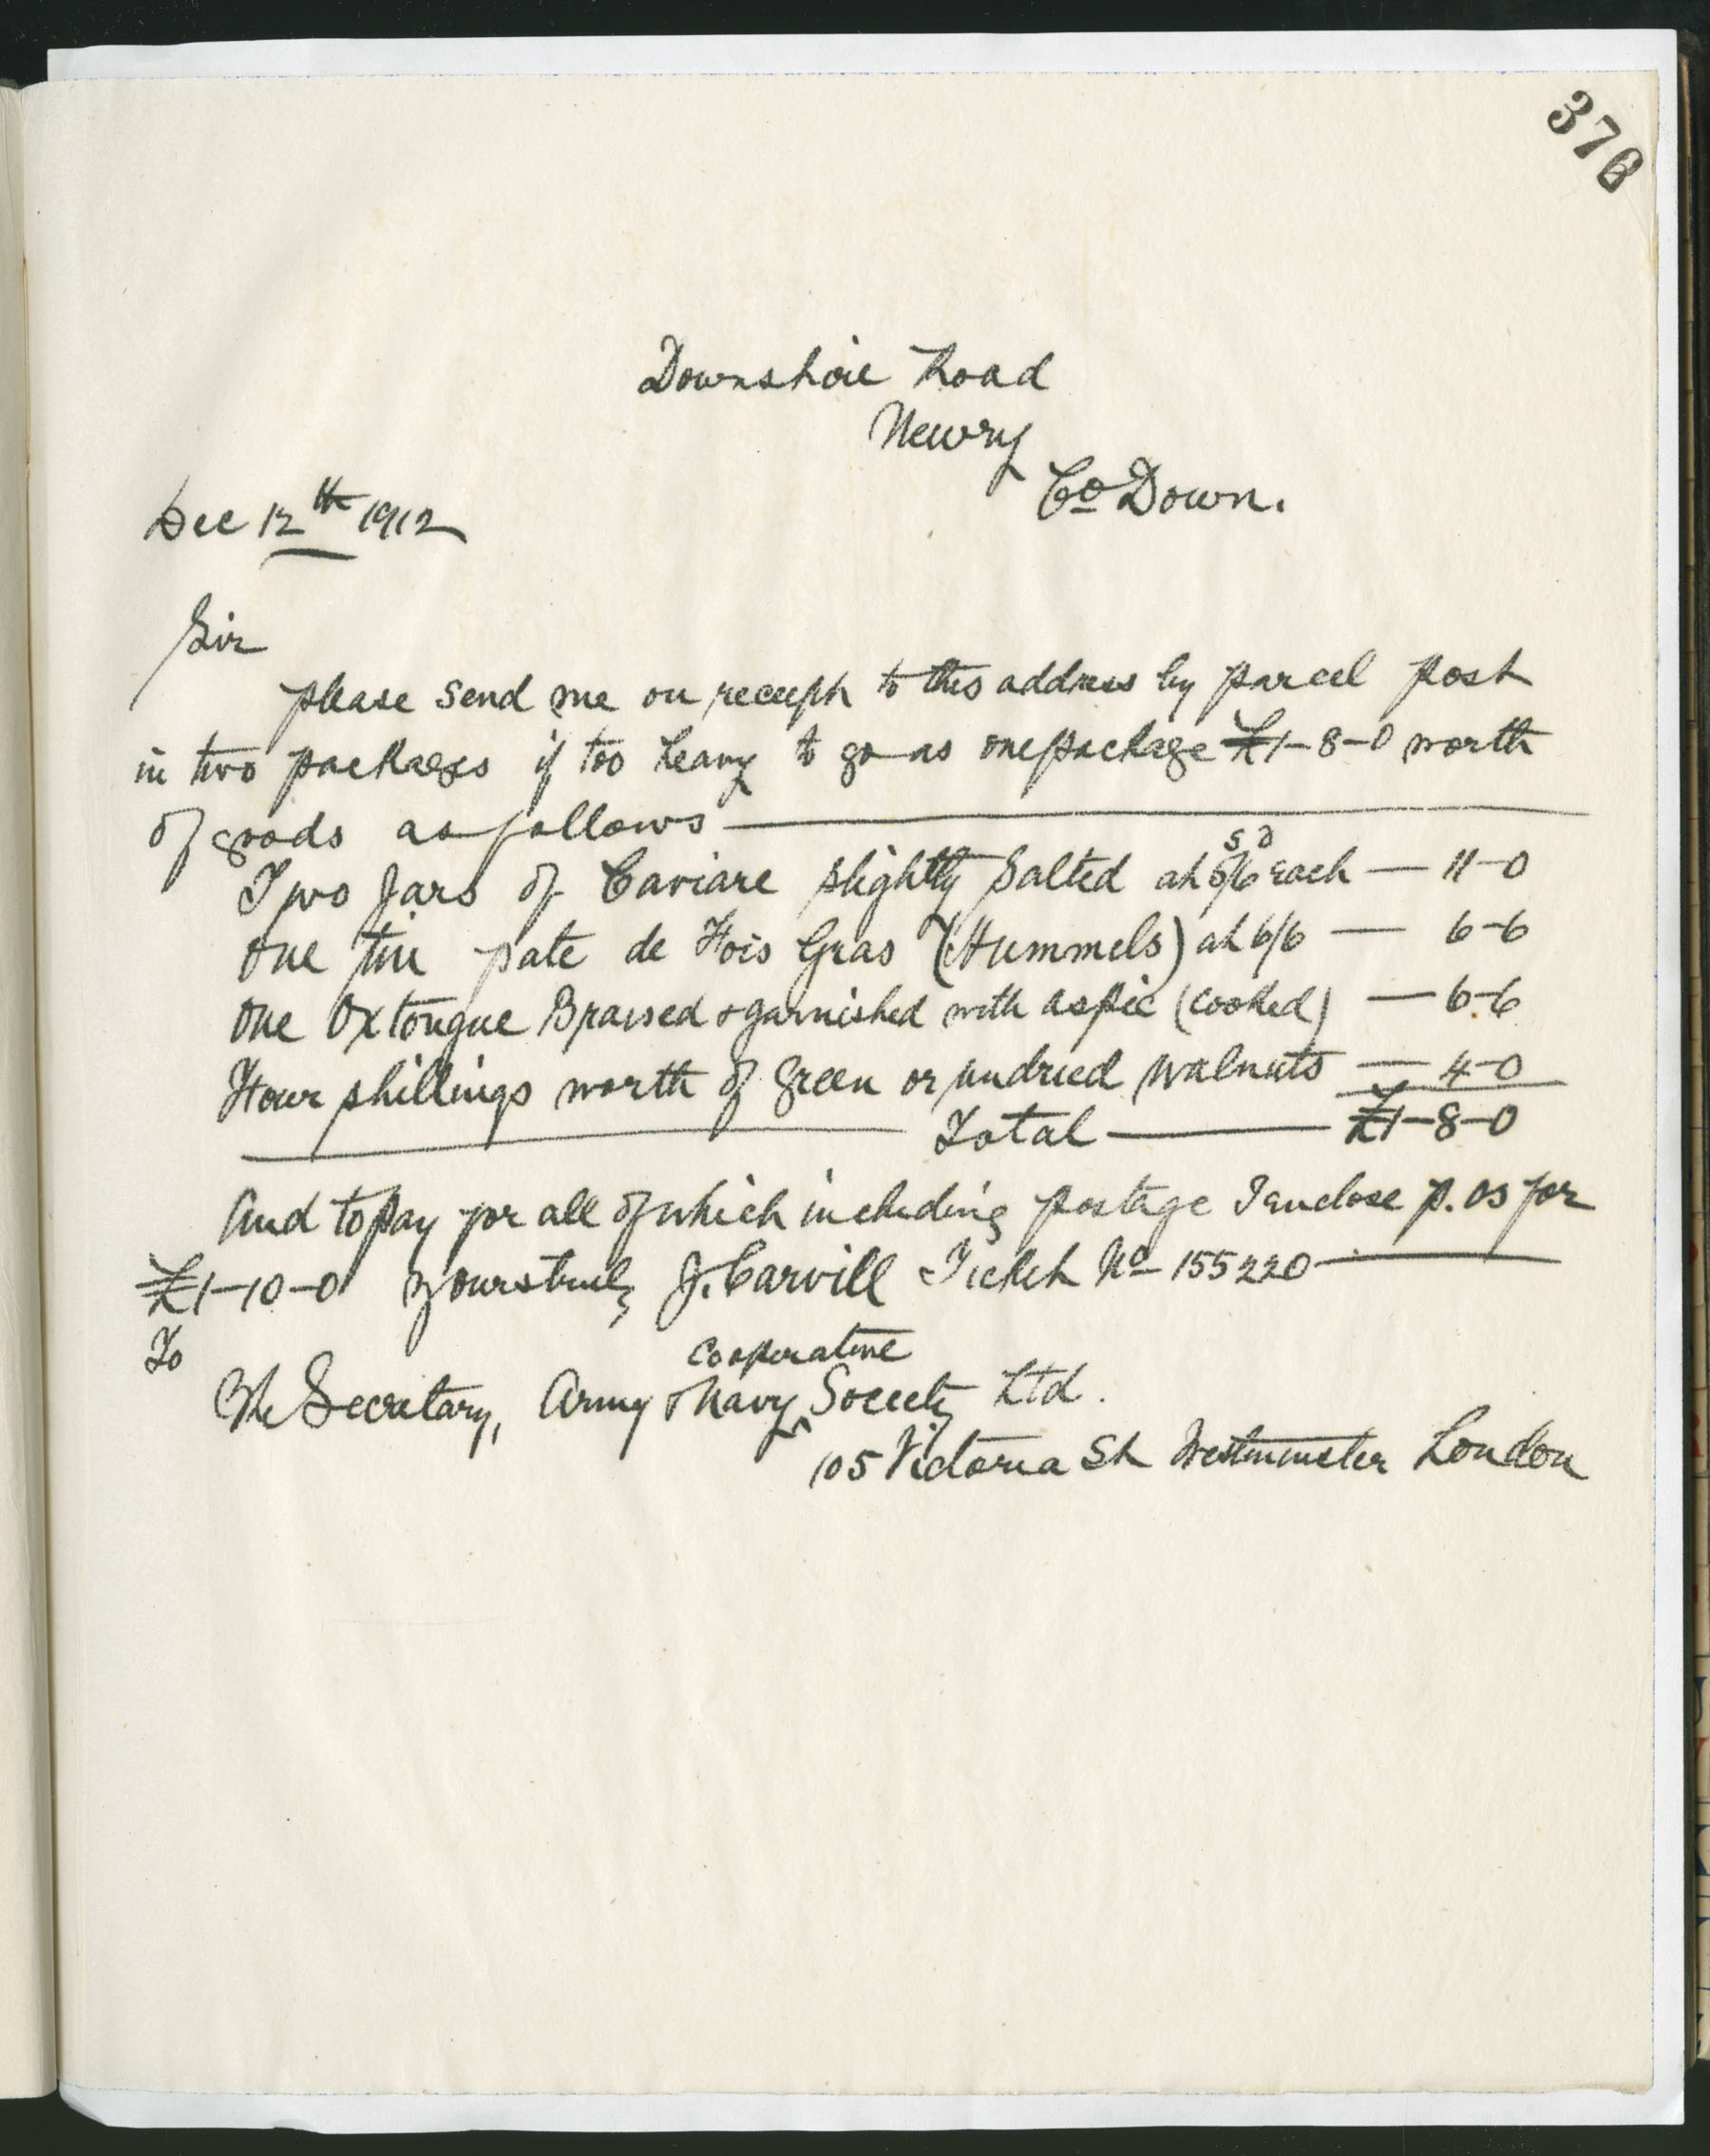 376
Downshire Road
Newry
Co Down.
Dec 12th 1912
Sir
please send me on receipt to this address by parcel post
in two packages if too heavy to go as one package £1-8-0 worth
of goods as follows
Two Jars of Caviare slightly salted at 5/6 each — 11-0
S D
One tin pate de Fois Gras (Hummels) at 6/6 — 6-6
One Ox tongue Braised & garnished with aspic (cooked) — 6-6
Four shillings worth of green or undried walnuts — 4-0
Total — £1-8-0
And to pay for all of which including postage I enclose p. os for
£1-10-0 yours truly J. Carvill Ticket No 155220
To
cooperative
The Secretary, Army & Navy ^ Society Ltd.
105 Victoria St Westminster London